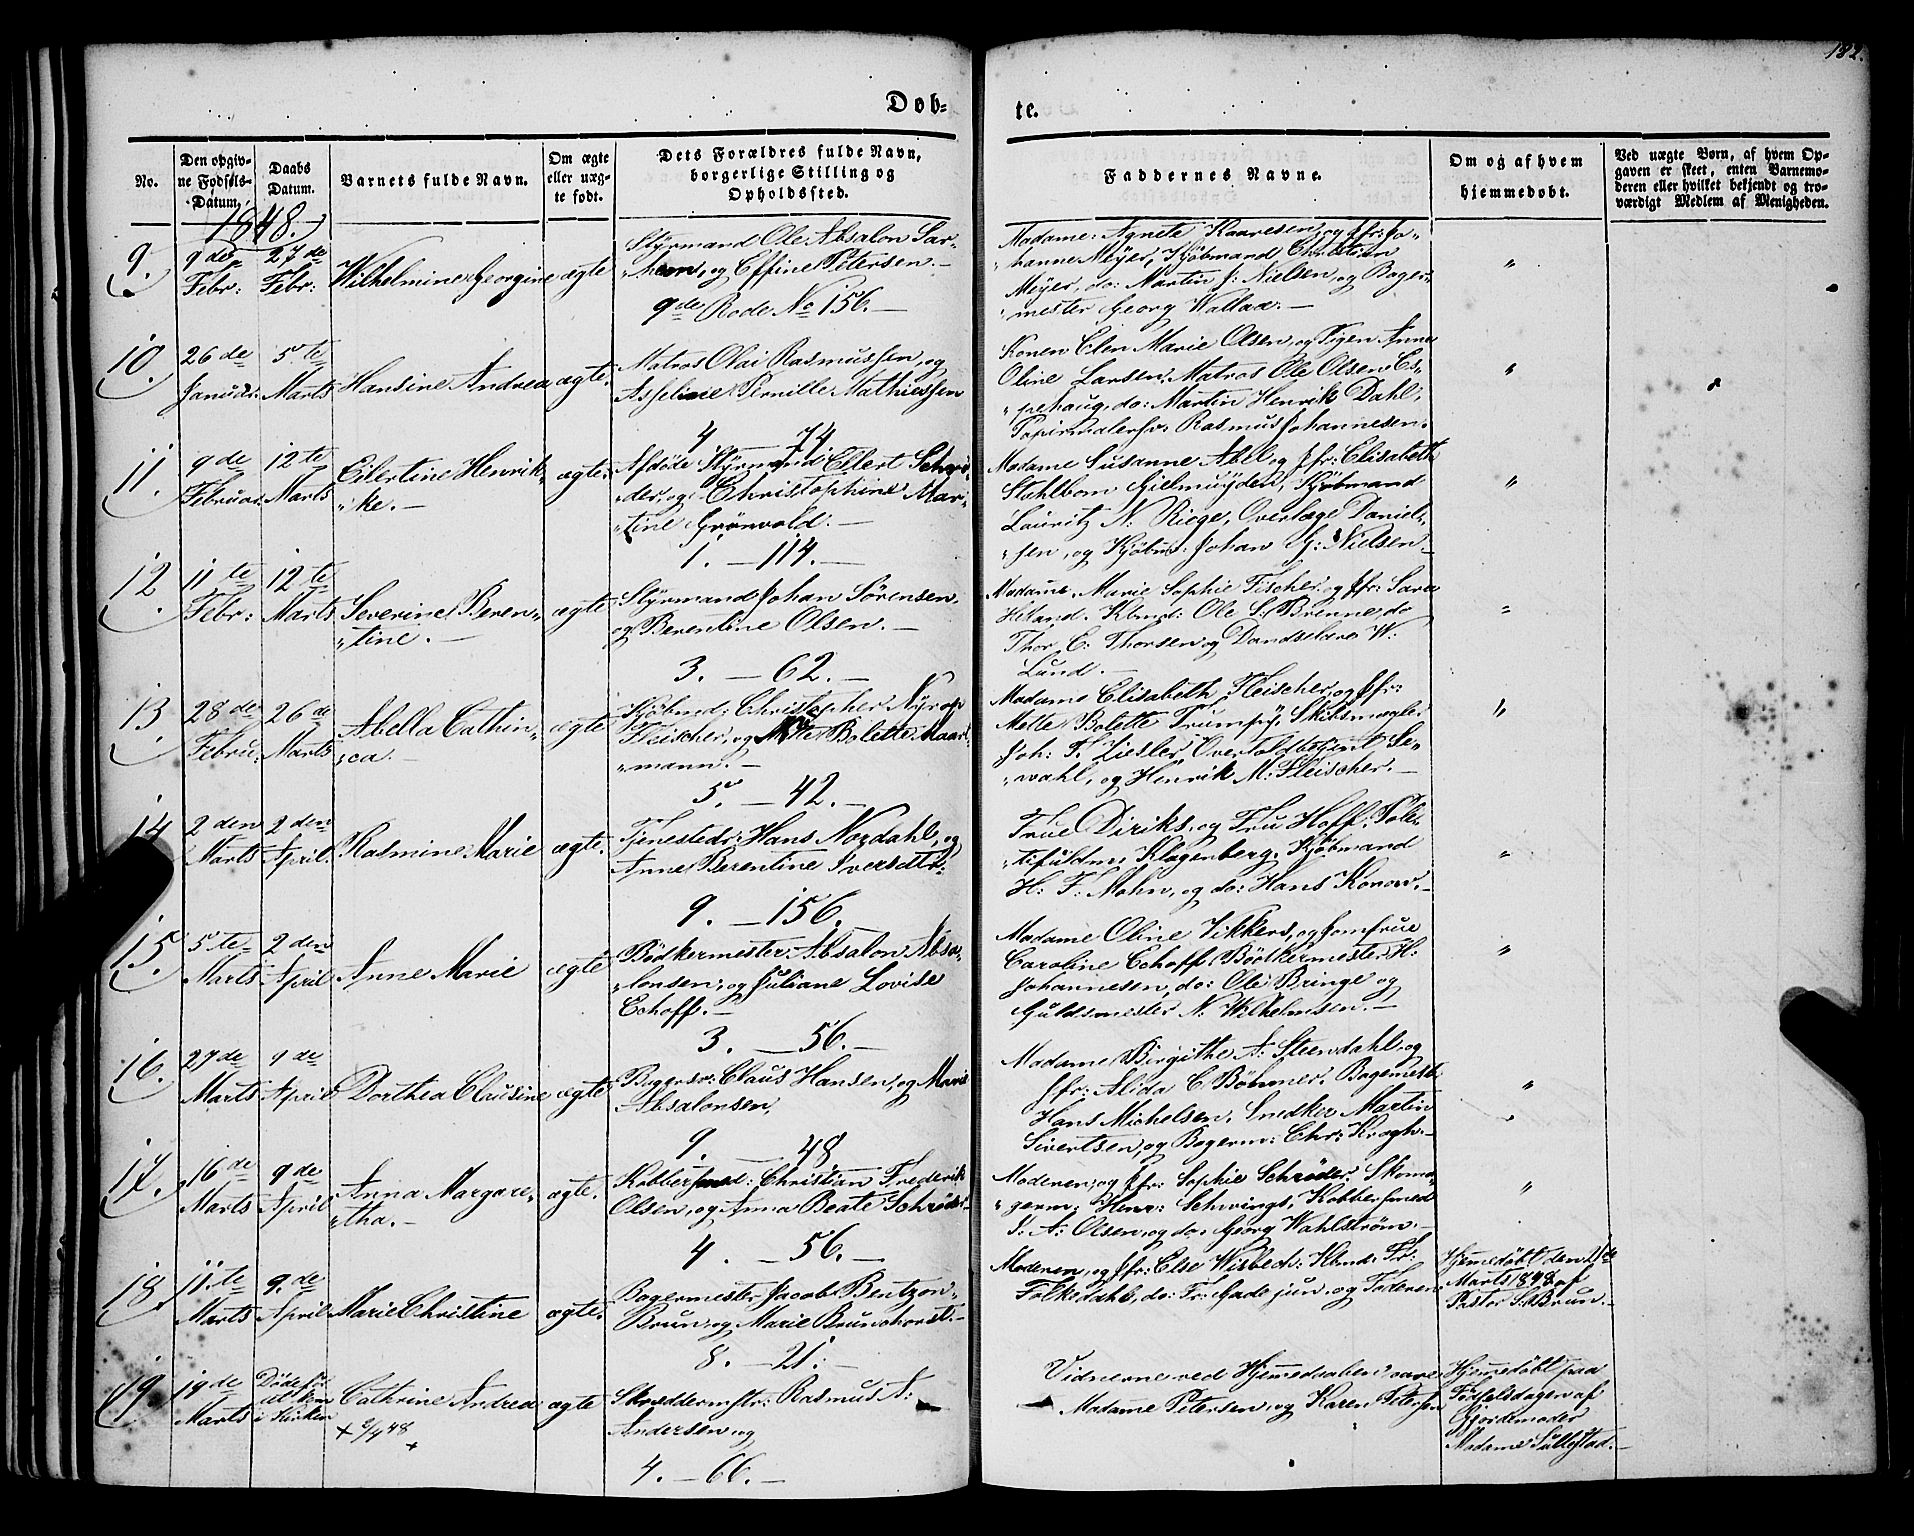 182.
Døb-
te.
No.
Den opgiv-
ne Fødsels-
Datum.
Daabs
Datum.
Barnets fulde Navn.
Om ægte
eller uæg-
te født.
Dets Forældres fulde Navn,
borgerlige Stilling og
Opholdssted.
Faddernes Navne.
Om og af hvem
hjemmedøbt.
Ved uægte Børn, af hvem Op-
gaven er skeet, enten Barnemo-
deren eller hvilket bekjendt og tro-
værdigt Medlem af Menigheden.
1848.
9.
9de
Febr:
27de
Febr:
Wilhelmine Georgine
ægte
Styrmand Ole Absalon
og Effine Petersen.
9de Rode No 156.
Madame Agnete Kaaresen, og Jfr: Jo-
hanne Meyer, Kjøbmand Christian
Meyer, do: Martin J: Nielsen, og Bager-
mester Georg Wallaa.
"
10.
26de
Januar.
5te
Marts
Hansine Andrea
ægte.
Matros Olai Rasmussen, og
Asseline Pernille Mathiessen
4 — 74
Konen Elen Marie Olsen, og Pigen Anne
Oline Larsen. Matros Ole Olsen Es-
pehaug, do: Martin Henrik Dahl,
Rasmus Johannesen.
"
11.
9de
Februar.
12te
Marts
Eilertine Henrik-
ke.
ægte.
Afdøde Styrmand Ellert Schrø-
der, og Christophine Mar-
tine Grönvold.
1. — 114.
Madame Susanne Abel, og Jfr: Elisabeth
Stahlbom Gielmuyden, Kjøbmand
Lauritz N. Riege, Overlæge Daniel-
sen, og Kjøbm: Johan G: Nielsen
"
12
11te
Febr:
12te
Marts
Severine Beren-
tine.
ægte
Styrmand Johan Sørensen,
og Berentine Olsen.
3. — 62.
Madame Marie Sophie Fischer, og Jfr: Sara
Hetland. Kbmd: Ole S. Brenne, do
Thor C. Thorsen og Dandselærer W:
Lund.
"
13
28de
Febru:
26de
Marts
Abella Cathin-
ca.
ægte
Kjøbmd: Christopher Nyrop
Fleischer, og Mette Bolette Maart-
mann.
5. — 42.
Madame Elisabeth Fleischer, og Jfr:
Mette Bolette Trumpy. Skibsmægler
Joh: F. Ziesler, Over Toldbetjent Se-
wahl, og Henrik M. Fleischer.
"
14
2den
Marts
2den
April.
Rasmine Marie
ægte.
Tjenestedr: Hans Nordahl, og
Anne Berentine Iversdtr:
9. — 156.
Frue Diriks, og Fru Hoff. Poli-
tifuldm: Klagenberg, Kjøbmand
H: F. Mohn, og do: Hans Konow.
"
15.
5te
Marts
2den
April
Anne Marie
ægte
Bödkermester Absalon Absa-
lonsen, og Juliane Lovise
Echoff.
3. — 56.
Madame Oline Vikkers, og Jomfrue
Caroline Echoff. Bödkermester H:
Johannesen, do: Ole Bringe og
Guldsmester N. Wilhelmsen.
"
16.
27de
Marts
9de
April
Dorthea Clausine
ægte
Bagersv: Claus Hansen, og Marie
Absalonsen.
9. — 48
Madame Birgithe A. Steendahl, og
Jfr: Alida C. Böhmer. Bagermest:
Hans Michelsen, Snedker Martin
Sivertsen, og Bagerm: Chr: Krogh.
"
17.
16de
Marts
9de
April
Anna Margare-
tha.
ægte.
Kobbersmed: Christian Frederik
Olsen, og Anna Beate Schröder
4. — 56.
Moderen, og Jfr: Sophie Schröder. Skoma-
germ: Henr: Schvings, Kobbersmed
I. A: Olsen, og do: Georg Wahlström.
"
18.
11te
Marts
9de
April
Marie Christine
ægte.
Bagermester Jacob Bentzon
Brun, og Marie Brunchorst.
8. — 21.
Moderen, og Jfr: Else Wisbech. Kbmd: Fr:
Folkedahl, do: Fr: Gade jun. og Faderen
Hjemedöbt den
Marts 1848 af
Pastor S. Brun.
19.
19de
Marts
Dödsfø-
i Kirken
Cathrine Andrea
+ 6/4 48
+
ægte
Skræddermstr: Rasmus A:
Andersen, og
4. — 66.
Vidnerne ved Hjemedaaben vare
Madame Petersen, og Karen Petersen
Hjemedöbt paa
Fødselsdagen af
Gjordemoder
Madame Sullestad.